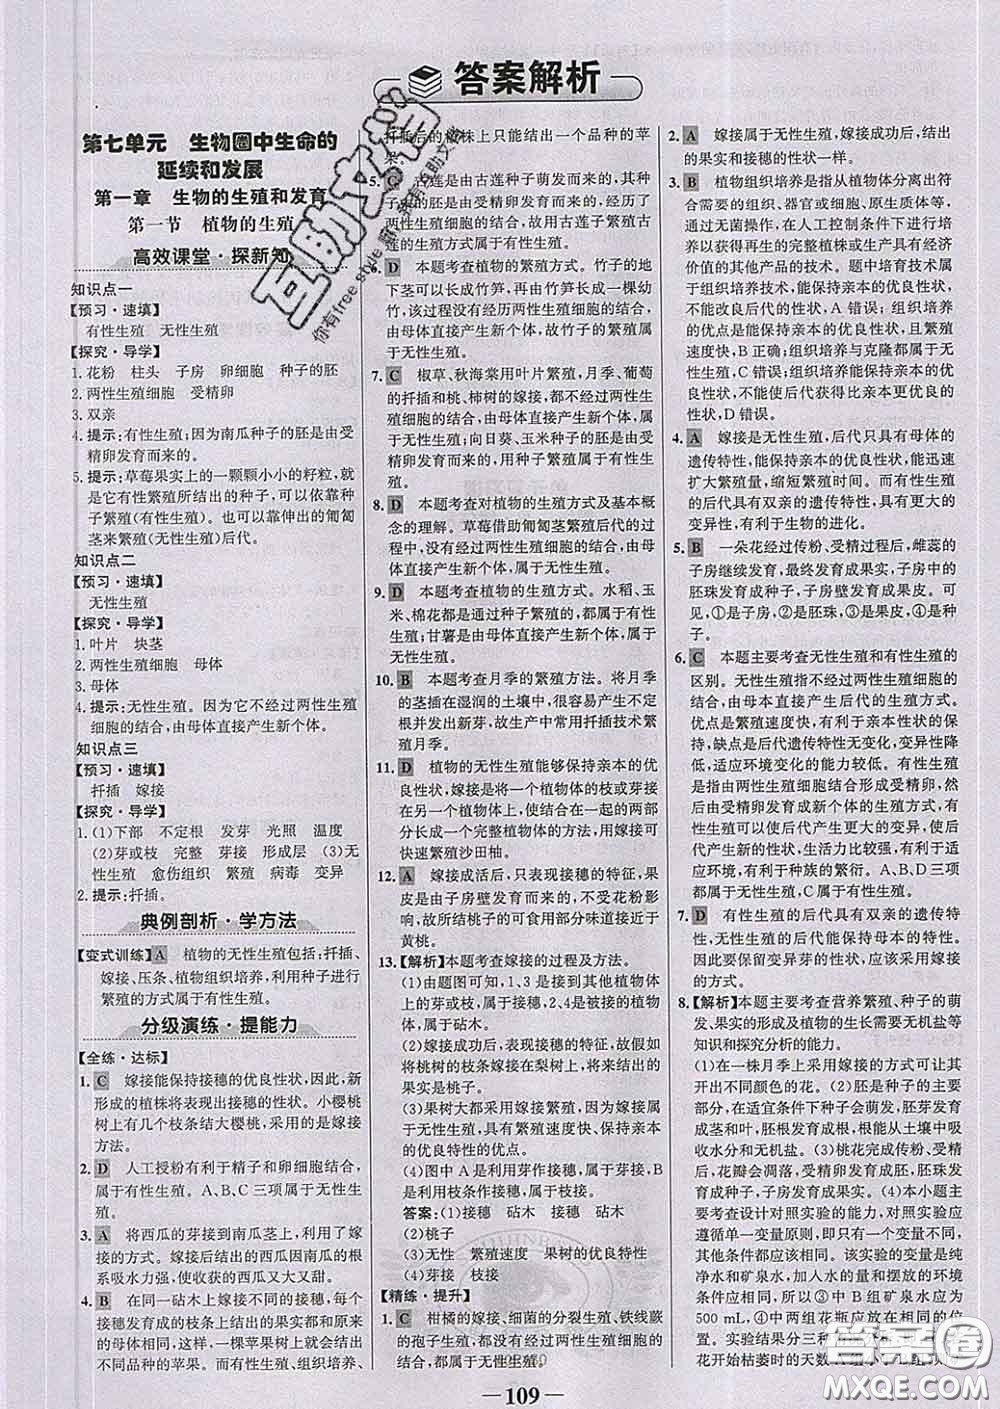 答案解析
第七单元　生物圈中生命的
延续和发展
第一章　生物的生殖和发育
第一节　植物的生殖
高效课堂·探新知
知识点一
【预习·速填】
有性生殖　无性生殖
【探究·导学】
1. 花粉　柱头　子房　卵细胞　种子的胚
2. 两性生殖细胞　受精卵
3. 双亲
4. 提示:有性生殖;因为南瓜种子的胚是由受
精卵发育而来的。
5. 提示:草莓果实上的一颗颗小小的籽粒,就
是它有性繁殖所结出的种子,可以依靠种
子繁殖(有性生殖)。也可以靠伸出的匍匐
茎来繁殖(无性生殖)后代。
知识点二
【预习·速填】
无性生殖
【探究·导学】
1. 叶片　块茎
2. 两性生殖细胞　母体
3. 母体
4. 提示:无性生殖。因为它不经过两性生殖
细胞的结合,由母体直接产生新个体。
知识点三
【预习·速填】
扦插　嫁接
【探究·导学】
1. (1)下部　不定根　发芽　光照　温度
(2)芽或枝　完整　芽接　形成层　(3)无
性生殖　愈伤组织　繁殖　病毒　变异
2. 提示:扦插。
典例剖析·学方法
【变式训练】A　植物的无性生殖包括:扦插、
嫁接、压条、植物组织培养,利用种子进行
繁殖的方式属于有性生殖。
分级演练·提能力
【全练·达标】
1. C　嫁接能保持接穗的优良性状,因此,新
形成的植株将表现出接穗的性状。小樱桃
树上有几个枝条结大樱桃,采用的是嫁接
方法。
2. D　人工授粉有利于精子和卵细胞结合,
属于有性生殖。A、B、C三项属于无性生
殖。
3. A　将西瓜的芽接到南瓜茎上,利用了嫁
接的方式。嫁接后结出的西瓜因南瓜的根
系吸水力强,使结的西瓜又大又甜。
4. B　在同一砧木上嫁接不同的接穗,每个
接穗发育成的枝条上结出的果实都和原来
的母体相同,这样,一棵苹果树上就会结出
多个品种的苹果。而有性生殖、组织培养、
扦插后的植株上只能结出一个品种的苹
果。
5. C　古莲是由古莲种子萌发而来的,其种
子的胚是由受精卵发育而来的,经历了
两性生殖细胞的结合,故用古莲子繁殖古
莲的方式属于有性生殖。
D　本题考查植物的繁殖方式。竹子的地
下茎可以长成竹笋,再由竹笋长成一棵幼
竹,该过程没有经历两性生殖细胞的结合,
由母体直接产生新个体,故竹子的繁殖属
于无性生殖。
7. C　椒草、秋海棠用叶片繁殖,月季、葡萄
的扦插和桃、柿树的嫁接,都不经过两性生
殖细胞的结合,由母体直接产生新个体,都
属于无性生殖;向日葵、玉米种子的胚是由
受精卵发育而来的,经历了两性生殖细胞
的结合,属于有性生殖。
8. D　本题考查对植物的生殖方式及基本概
念的理解。草莓借助匍匐茎繁殖后代的过
程中,没有经过两性生殖细胞的结合,由母
体直接产生新个体,故属于无性生殖。
9. D　本题考查植物的生殖方式。水稻、玉
米、棉花都是通过种子繁殖的,都属于有性
生殖;甘薯是由母体直接产生新个体,属于
无性生殖。
10. B　本题考查月季的繁殖方法。将月季
的茎插在湿润的土壤中,很容易产生不定
根并发出新芽,故生产中常用扦插技术繁
殖月季。
11. D　植物的无性生殖能够保持亲本的优
良性状,嫁接是将植物体的枝或芽嫁接
在另一个植物体上,使结合在一起的两部
分长成一个完整植物体的方法,用嫁接可
快速繁殖沙田柚。
12. A　嫁接成活后,只表现接穗的特征,果
皮是由子房壁发育而来的,不受花粉影
响,故所结桃子的可食用部分味道接近于
黄桃。
13.【解析】本题考查嫁接的过程及方法。
(1)由题图可知,1、3是接到其他植物体
上的芽或枝,属于接穗,2、4是被接的植物
体,属于砧木。
(2)嫁接成功后,表现接穗的性状,故假如
将桃树的枝条嫁接在梨树上,将来结出的
果实是桃子。
(3)果树大都采用嫁接繁殖,因为嫁接属
于无性生殖,具有繁殖速度快、保持果树
优良特性的优点。
(4)图中A是利用芽作接穗,属于芽接,B
是利用枝条作接穗,属于枝接。
答案:(1)接穗　砧木　接穗　砧木
(2)桃子
(3)无性　繁殖速度　果树的优良特性
(4)芽接　枝接
【精练·提升】
1. C　柑橘的嫁接、细菌的分裂生殖、铁线蕨
的孢子生殖,都没有经过两性生殖细胞的
结合,都属于无性生殖。
2. A　嫁接属于无性生殖,嫁接成功后,结出
的果实和接穗的性状一样。
3. B　植物组织培养是指从植物体分离出符
合需要的组织、器官或细胞、原生质体等,
通过无菌操作,在人工控制条件下进行培
养以获得再生的完整植株或生产具有经济
价值的其他产品的技术。题中培育技术属
于组织培养,组织培养能保持亲本的性状,
不能改良后代的性状,A错误;组织培养
的优点是能保持亲本的优良性状,且繁殖
速度快,B正确;组织培养与克隆都属于无
性生殖,C错误;组织培养能保持亲本的优
良性状,不能使后代获得比亲本更加优良
的性状,D错误。
4. A　嫁接是无性生殖,后代只具有母体的
遗传特性,能保持亲本的优良性状,能迅速
扩大繁殖量,缩短繁殖时间。而有性生殖
的后代具有双亲的遗传特性,具有更大的
变异性,有利于生物的进化。
5. B　一朵花经过传粉、受精过程后,雌蕊的
子房继续发育,最终发育成果实,子房中的
胚珠发育成种子,子房壁发育成果皮。可
见,①是子房,②是胚珠,③是果皮,④是种
子。
6. C　本题主要考查无性生殖和有性生殖的
区别。无性生殖是指不经过生殖细胞的结
合,由母本直接产生后代的生殖方式。其
优点是繁殖速度快,有利于亲本性状的保
持,缺点是后代遗传特性无变化,变异性降
低,适应环境变化的能力较低。有性生殖
是指由两性生殖细胞结合形成受精卵,再
由受精卵发育成新个体的生殖方式。有性
生殖可以使后代产生更大的变异,使后代
产生新的性状,生活力比较强,有利于适
应环境,有利于种族的繁衍。A、B、D三项
都属于无性生殖,C属于有性生殖。
7. D　有性生殖的后代具有双亲的遗传特
性,无性生殖的后代能保持母本的特性。
因此要保留变异芽的性状,应该采用嫁接
的方式。
8.【解析】本题主要考查营养繁殖、种子的萌
发、果实的形成及植物的生长需要无机盐等
知识和探究分析的能力。
(1)在一株月季上采用嫁接的方式可以开
出不同颜色的花。(2)胚是种子的主要部
分,在适宜条件下种子会萌发,胚芽发育
成茎和叶,胚根发育成根,能从土壤中吸
收水分和无机盐。(3)桃花完成传粉、受精
后,花瓣会凋落,受精卵发育成胚,胚珠发
育成种子,子房发育成果实。(4)本小题主
要考查设计对照实验的能力,对照实验应
遵循单一变量原则,即除变量不同以外,
其他条件都应该相同。该实验的变量是纯
净水和矿泉水,加入水的量和摆放的环境
条件应相同,所以③中B组矿泉水应为
500 mL,④中两组花瓶应放在相同的位
置。实验主要分三种
花开始枯萎的天数A组小于B组
109
互助文档
你有free style
答案圈
MXQE.COM